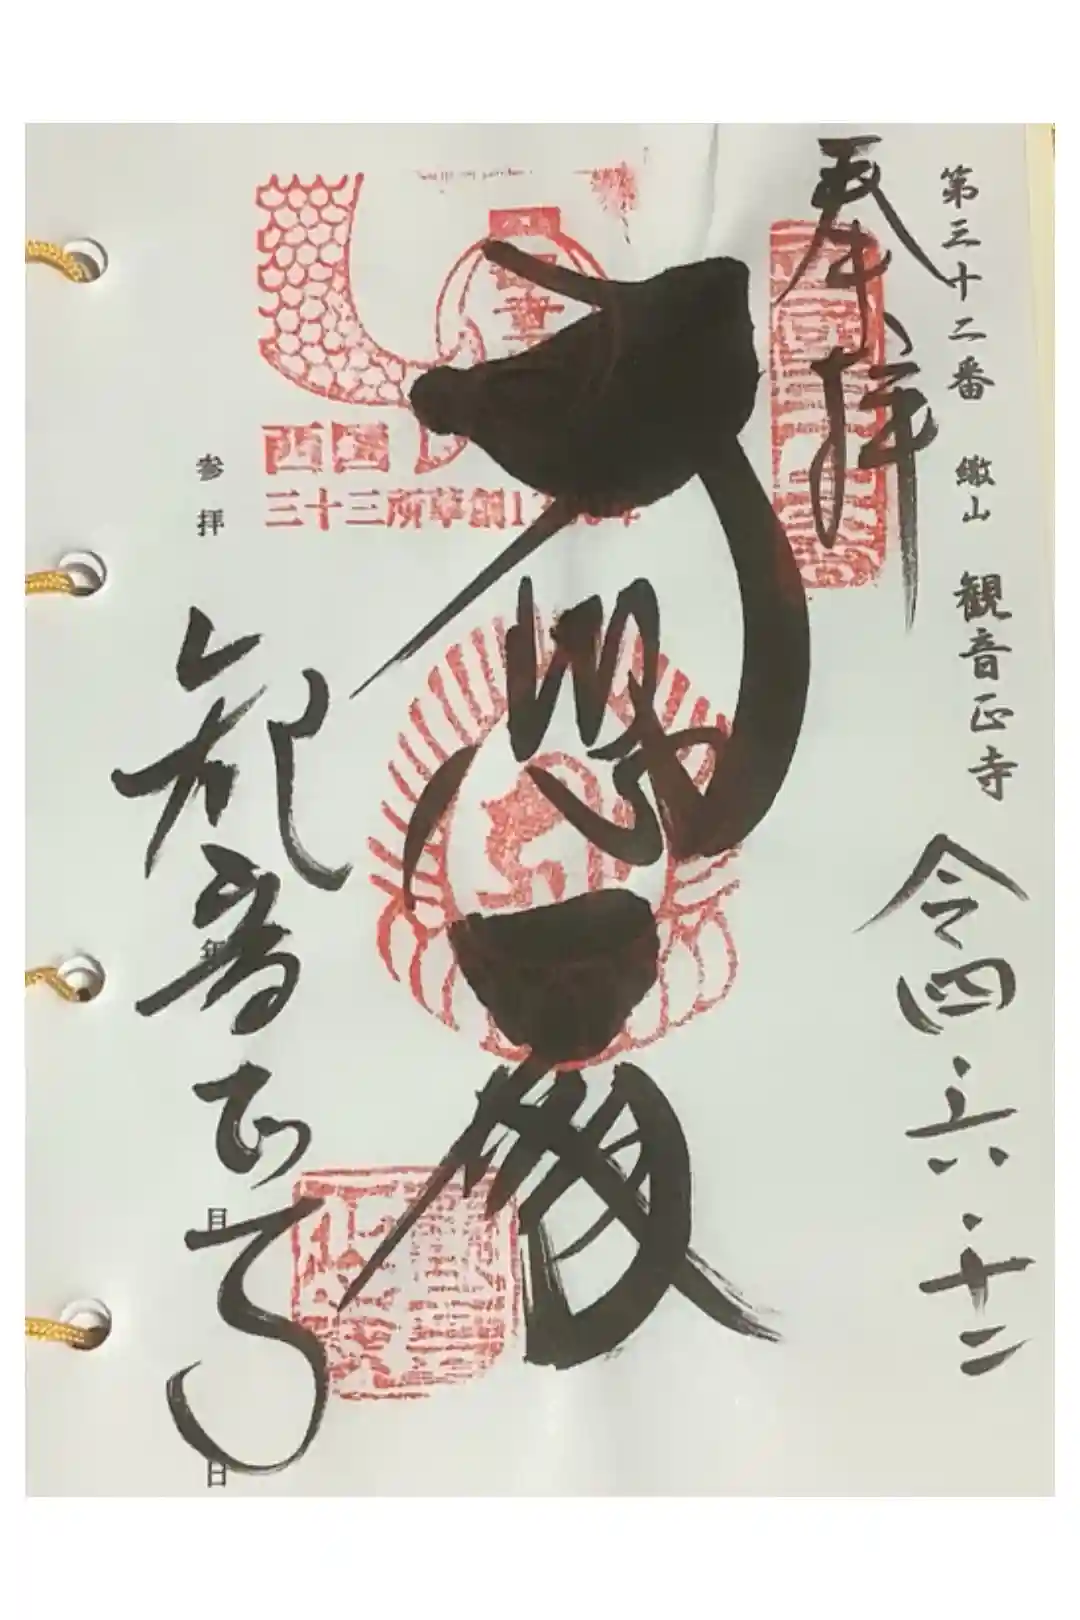 第三十二番 繖山 観音正寺
奉拝
令四・六・十二
大悲殿
西国
三十三所草創1
年
観音正寺
参拝
年
月
日